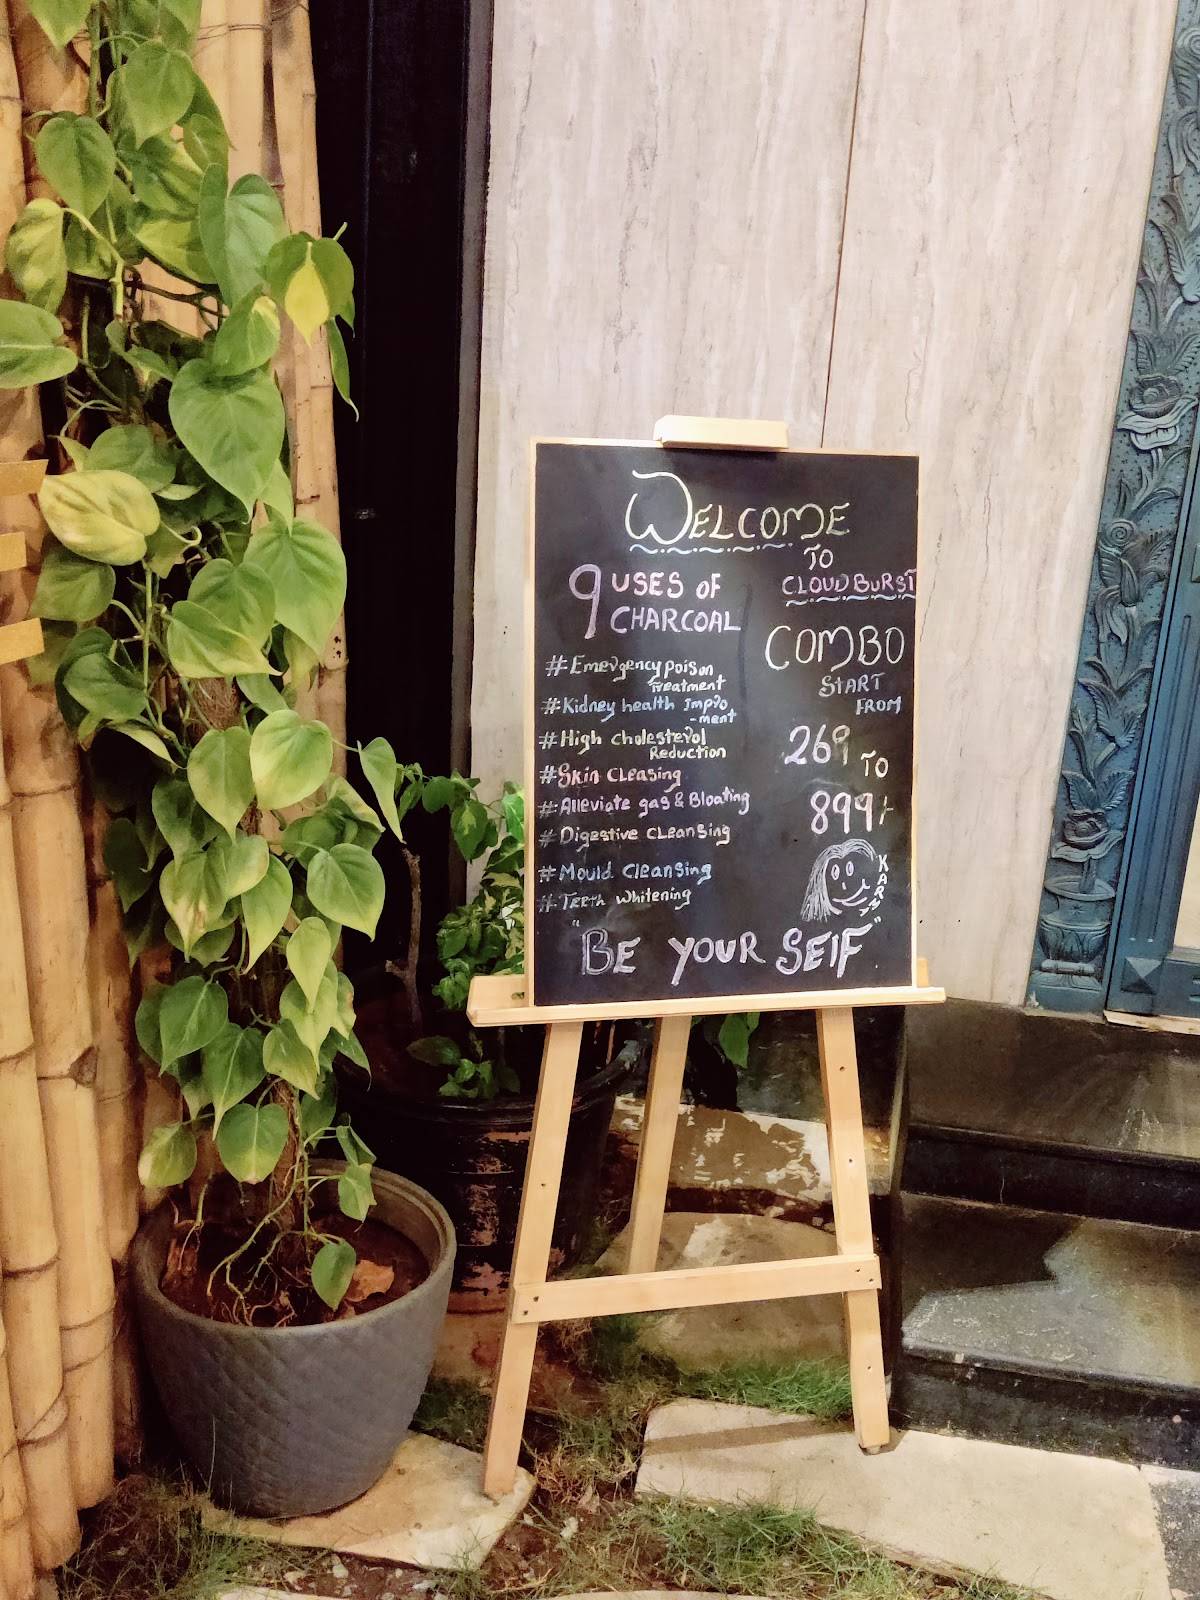 WELCOME
TO
CLOUDBURST
9 USES OF
CHARCOAL
#Emergency poison
Treatment
#Kidney health Impro
-ment
#High cholesterol
Reduction
#Skin Cleasing
#Alleviate gas & Bloating
#Digestive cleansing
#Mould Cleansing
#Teeth whitening
COMBO
START
FROM
269 TO
899/-
"BE YOUR SElF"